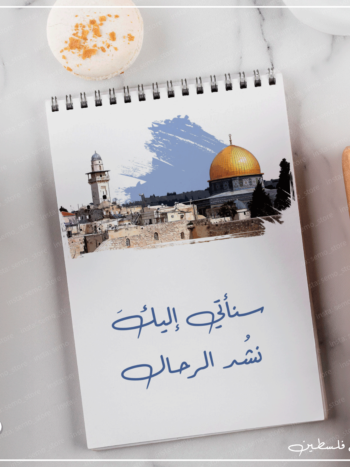 سنأتي إليكَ
نشُد الرحال
فلسطين